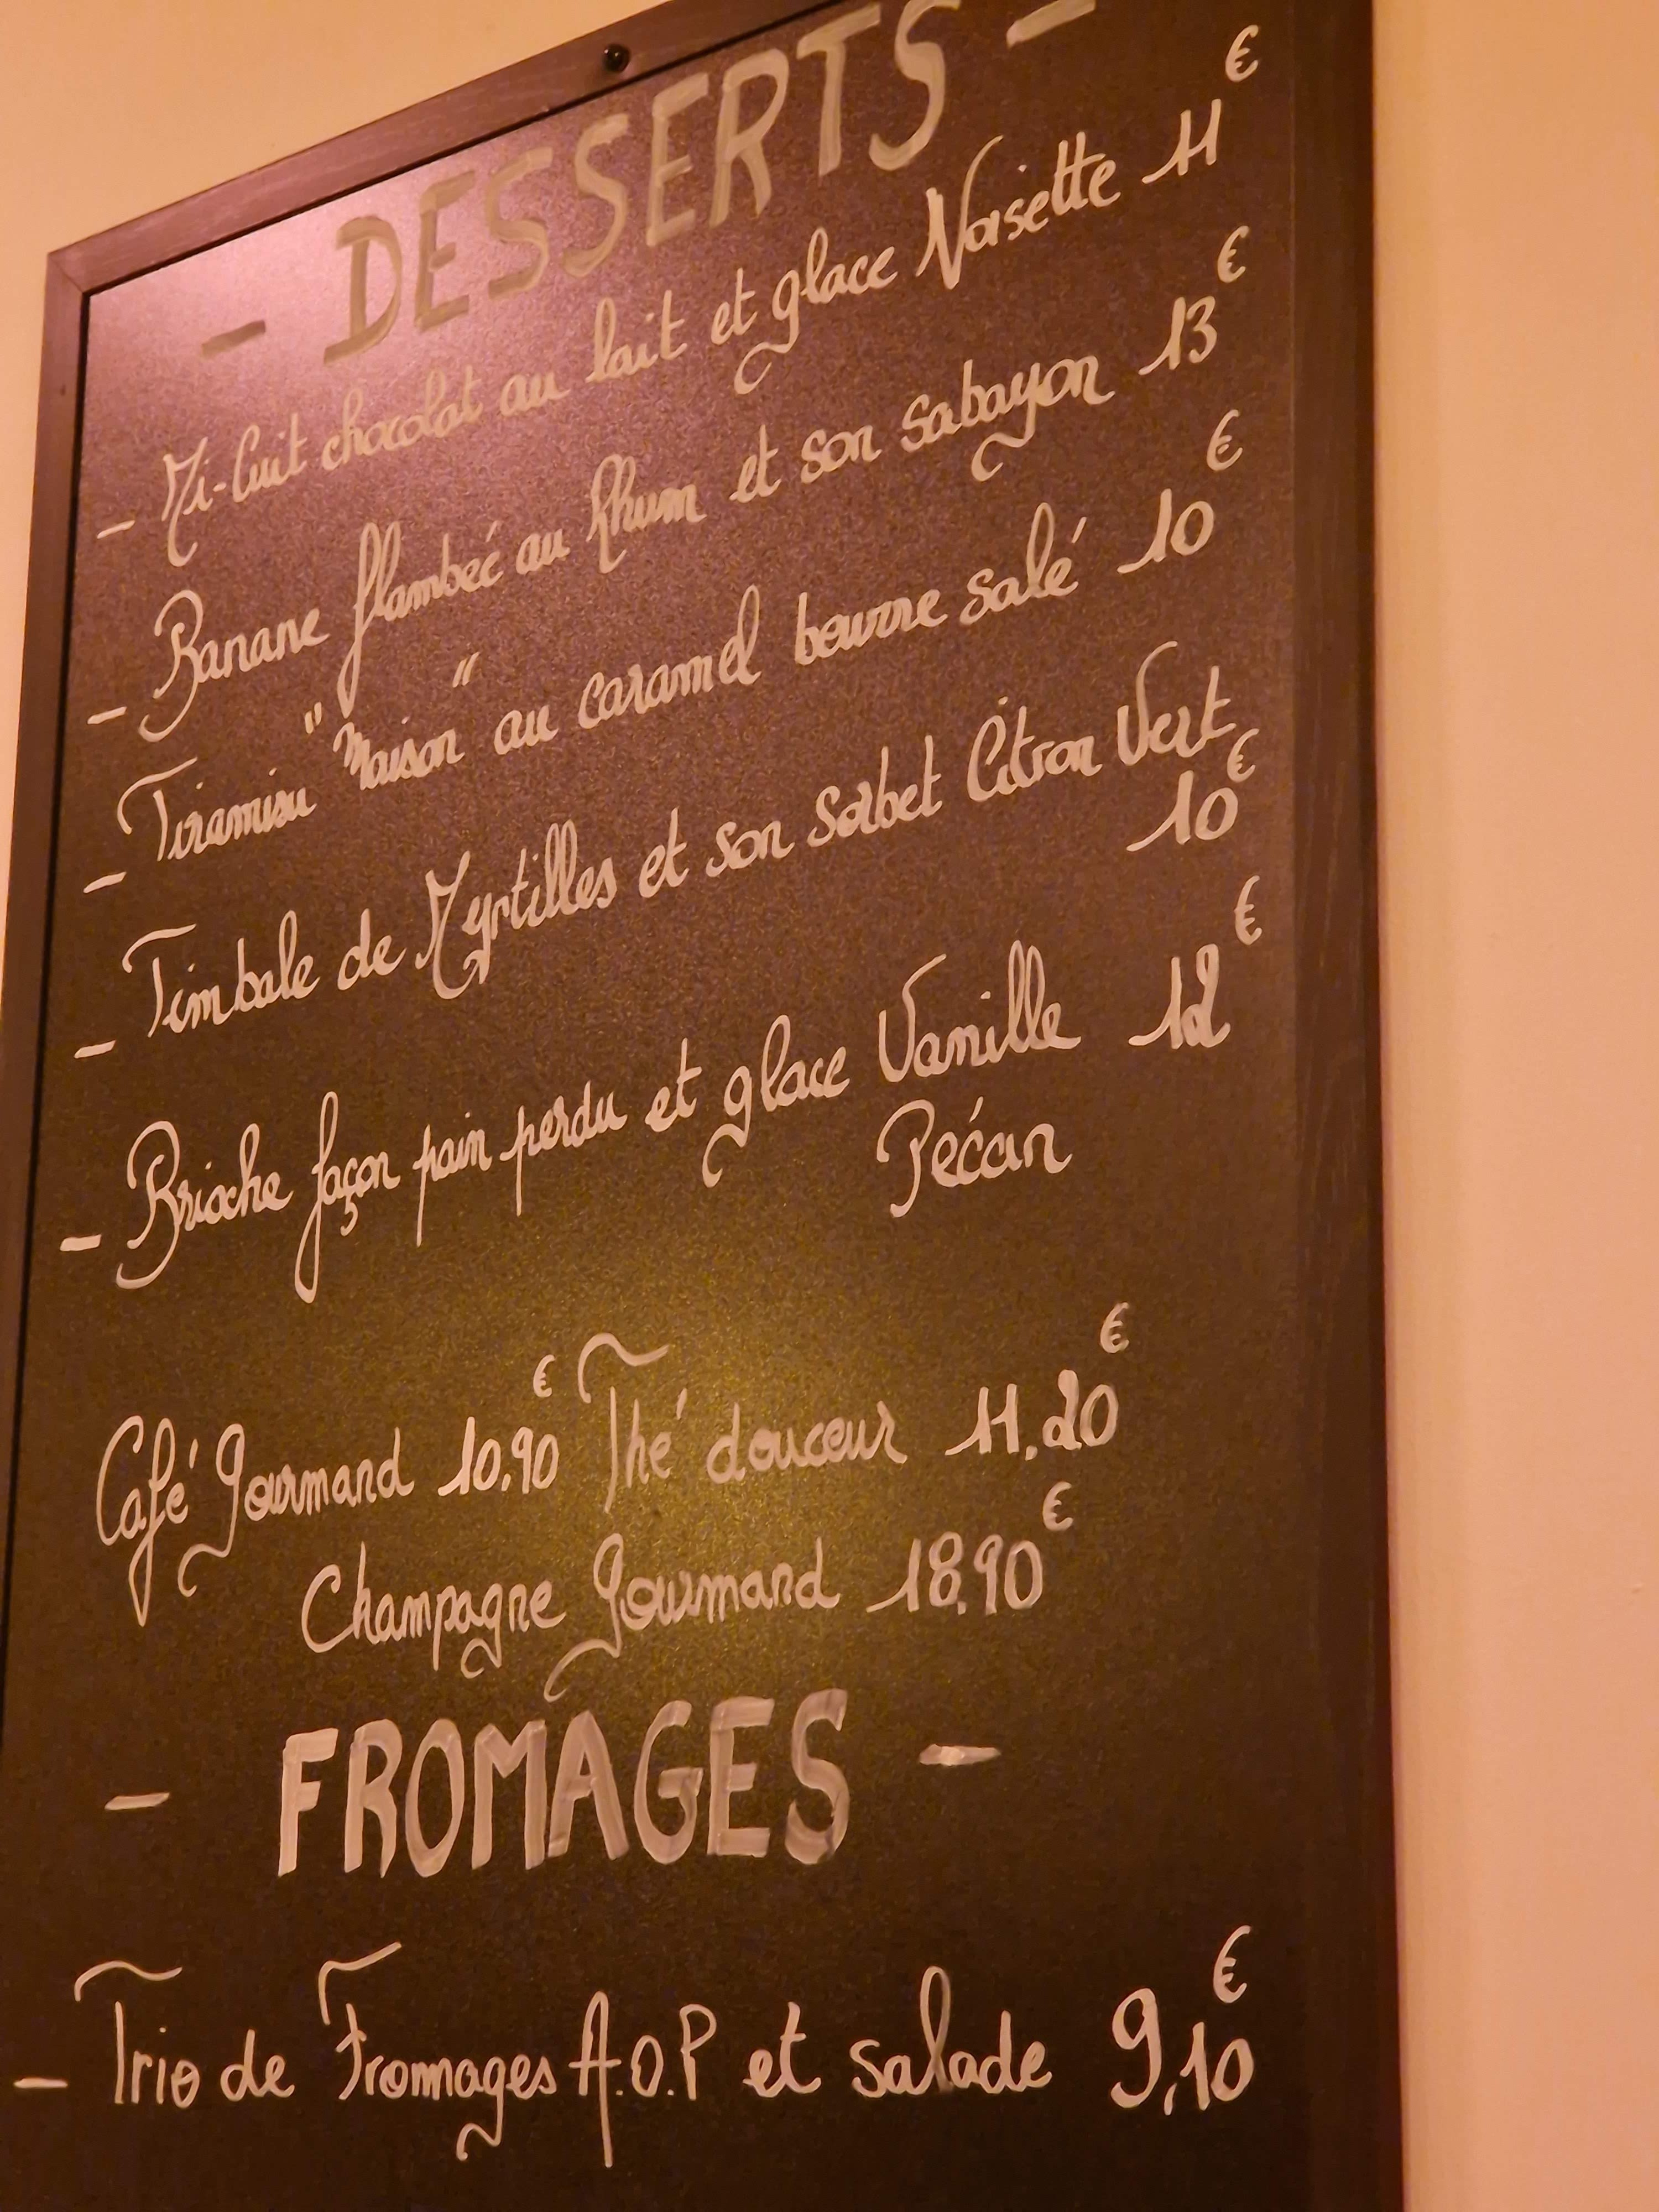 - DESSERTS -
- Mi-Cuit chocolat au lait et glace Noisette 11€
- Banane flambée au Rhum et son sabayon 13€
- Tiramisu "Maison" au caramel beurre salé 10€
- Timbale de Myrtilles et son sorbet Citron Vert
10€
- Brioche façon pain perdu et glace Vanille 12€
Pécan
Café Gourmand 10.90€ Thé douceur 11.20€
Champagne Gourmand 18.90€
- FROMAGES -
- Trio de Fromages A.O.P et salade 9,10€